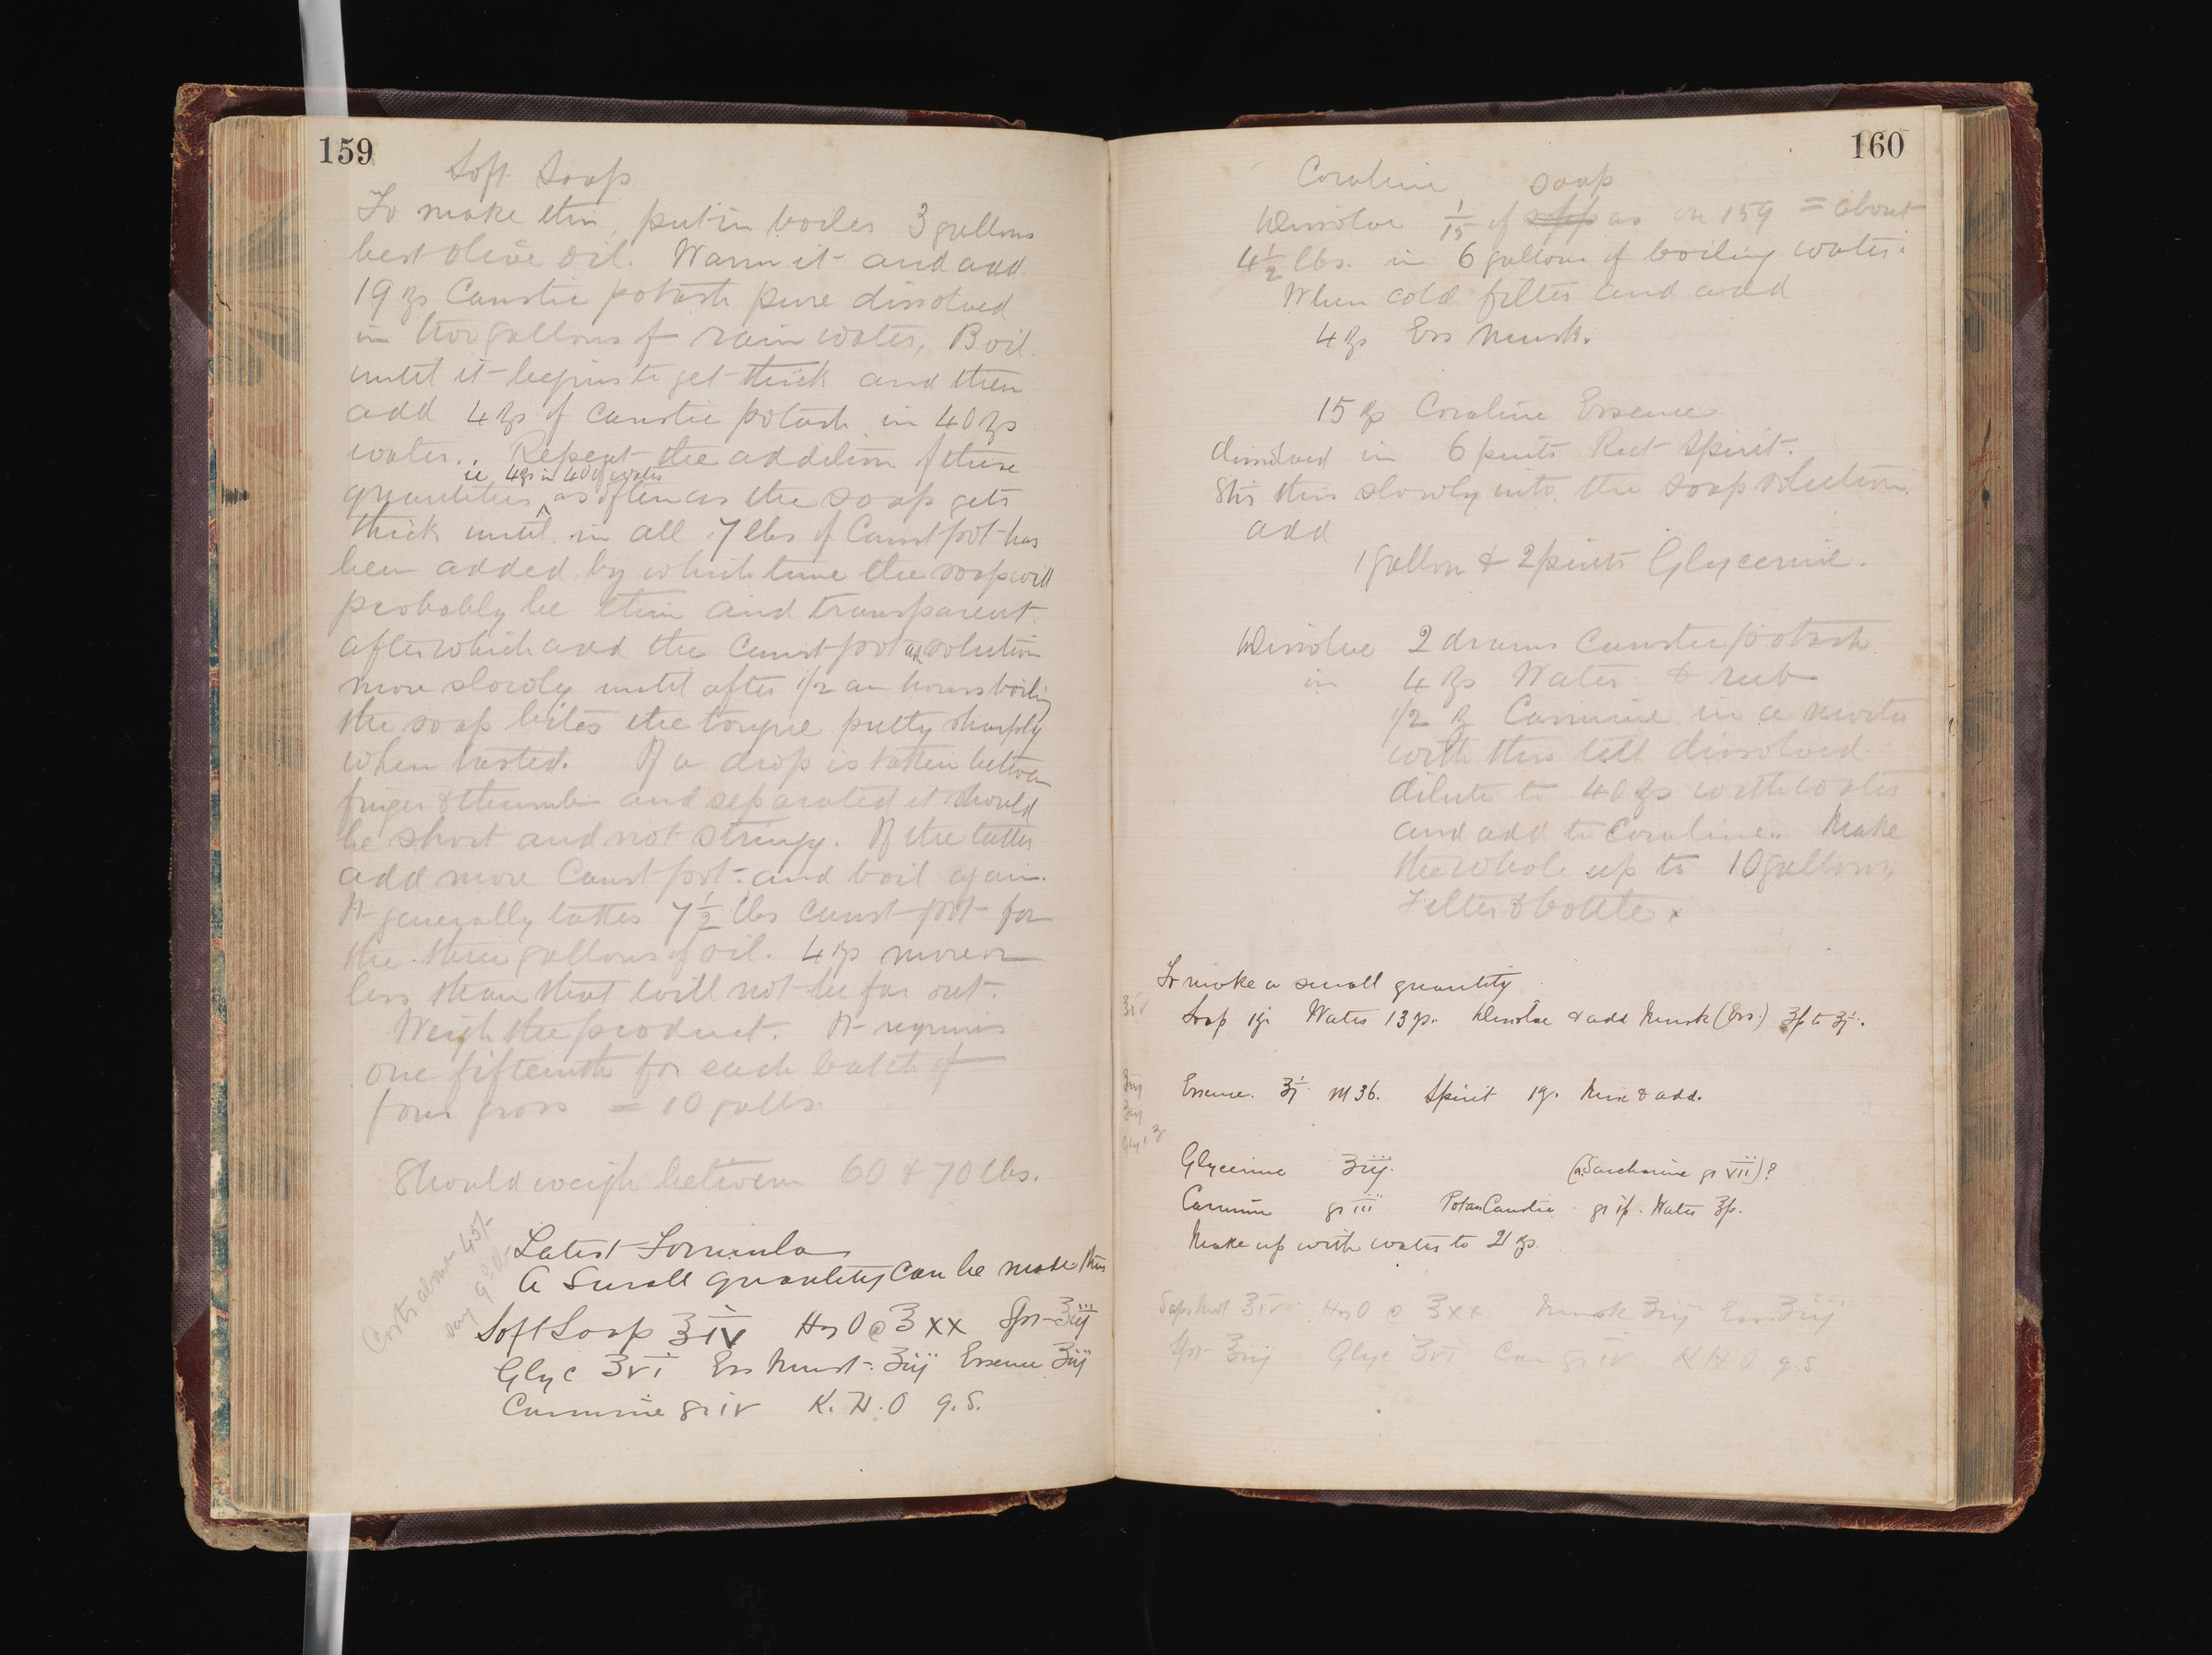 159
Soft Soap
To make this, put in boiler 3 gallons
best olive oil. Warm it and add
19 ℥s Caustic potash pure dissolved
in two gallons of rain water, Boil
until it begins to get thick and then
add 4 ℥s of caustic potash in 40 ℥s
water. Repeat the addition of these
ie 4℥s in 40 of water
quantities ^ as often as the soap gets
thick until in all 7 lbs of Caust pot has
been added by which time the soap will
probably be thin and transparent
after which add the Caust pot solution
more slowly until after 1/2 an hours boiling
the soap bites the tongue pretty sharply
when tasted. If a drop is taken between
finger & thumb and separated it should
be short and not stringy. If the latter
add more Caust pot. and boil again.
It generally takes 7 1/2 lbs caust pot for
the three gallons of oil. 4 ℥s more or
less than that will not be far out.
Weigh the product. It requires
one fifteenth for each batch of
four gross = 10 galls.
Should weigh between 60 & 70 lbs.
Costs about 45/-
say
Latest Formula
A Small quantity can be made thus
Soft Soap ℥iv H2O @ ℥xx Spr ℥iij
Glyc ℥vi Ess Musk ʒiij Essence ʒiij
Carmine gr iv K.H.O q.s.
160
Coraline soap
Dissolve 1/15 of soap as on 159 = about
4 1/2 lbs. in 6 gallons of boiling water.
When cold filter and add
4 ℥s Ess Musk.
15 ℥s Coraline Essence
dissolved in 6 pints Rect Spirit.
Stir this slowly into the soap solution.
add
1 gallon & 2 pints Glycerine.
Dissolve 2 drams Caustic potash
in 4 ℥s Water & rub
1/2 ℥ Carmine in a mortar
with this till dissolved
dilute to 40 ℥s with water
and add to Coraline. Make
the whole up to 10 gallons,
Filter & bottle.
To make a small quantity
℥iv
Soap 1℥. Water 13℥. Dissolve & add Musk (Ess.)
Essence. ʒj M 36. Spirit 1℥. Mix & add.
Glycerine ℥iij. (Saccharine gr vii)?
Carmine gr iii Potas Caustic Water
Make up with water to 21 ℥s.
Sapo Moll ℥iv H2O @ ℥xx Musk ʒiij Ess ʒiij
Spr ℥iij Glyc ℥vi Car gr iv K H O q.s